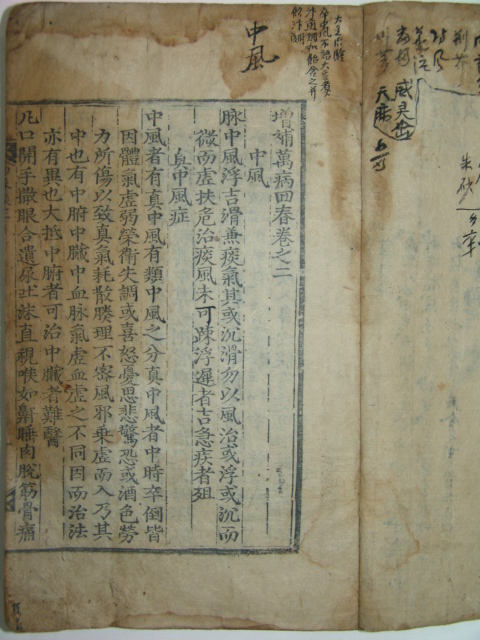 中風
增補萬病回春卷之二
中風
脉中風浮吉滑兼痰氣其或沉滑勿以風治或浮或沉而
微而虛扶危治痰風未可踈浮遲者吉急疾者殂
眞中風症
中風者有真中風有類中風之分真中風者中時卒倒皆
因體氣虛弱榮衛失調或喜怒憂思悲驚恐或酒色勞
力所傷以致真氣耗散腠理不密風邪乘虛而入乃其
中也有中腑中臟中血脉氣虛血虛之不同因而治法
亦有異也大抵中腑者可治中臟者難醫
凡口開手撒眼合遺尿吐沫直視喉如鼾睡肉脫筋骨痛